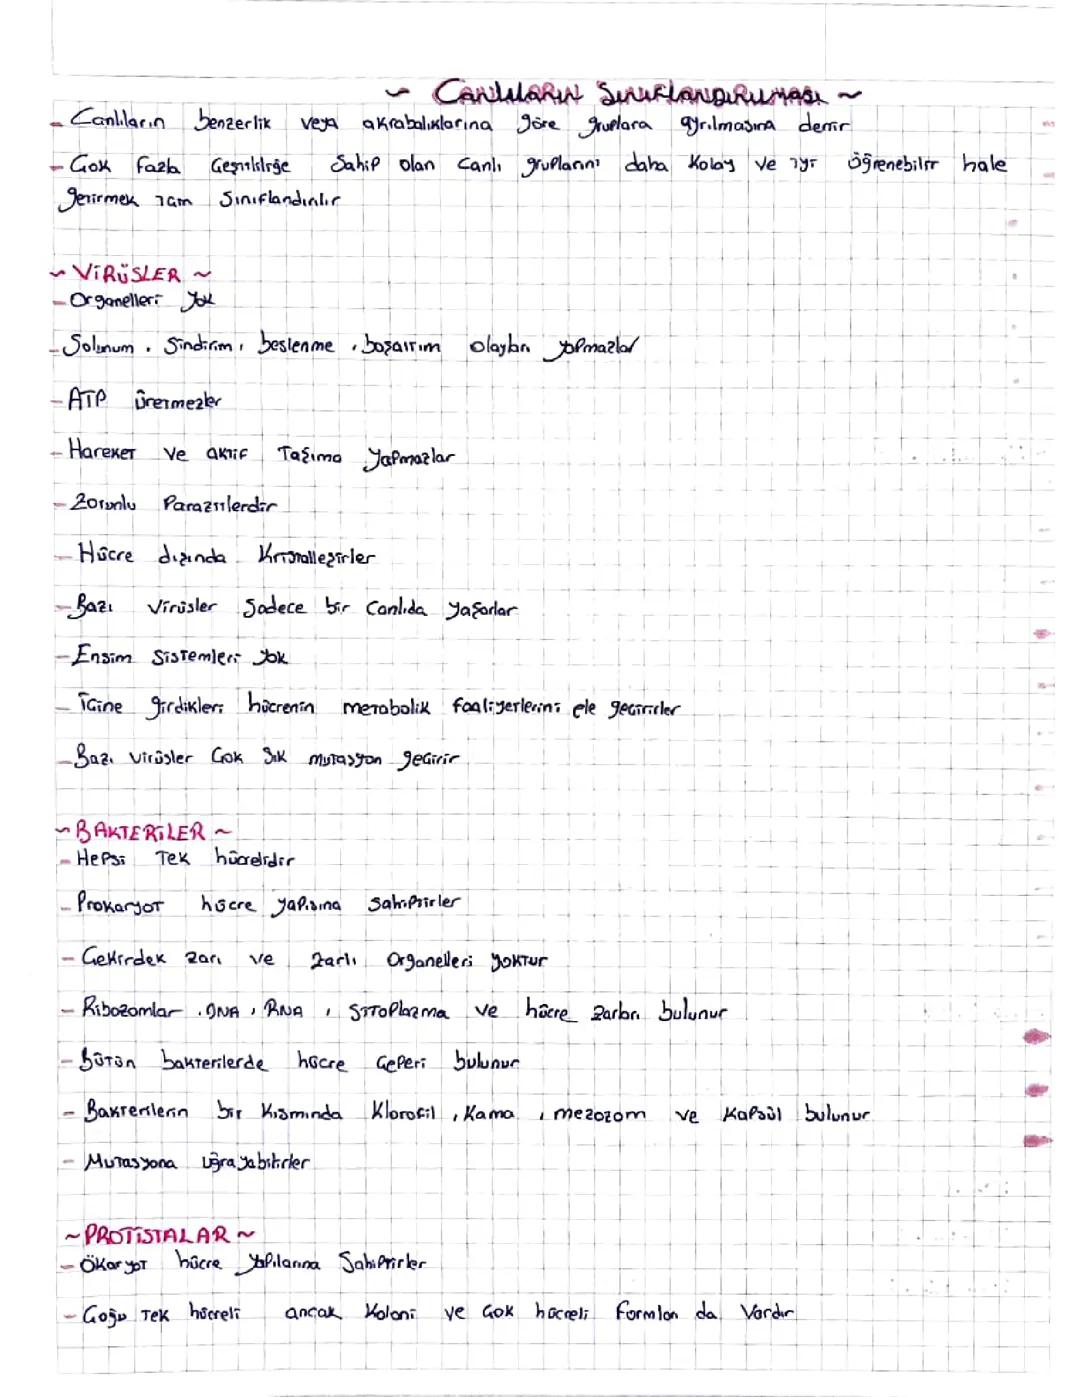 ~ CANLILARIN SINIFLANDIRILMASI ~
- Canlıların benzerlik veya akrabalıklarına göre gruplara ayrılmasına denir
- Çok fazla Çeşitliliğe Sahip olan Canlı gruplarını daha Kolay ve iyi öğrenebilir hale
getirmek için Sınıflandırılır
~ VİRÜSLER ~
- Organelleri Yok
- Solunum, Sindirim, beslenme, boşaltım olayları yapmazlar
- ATP üretmezler
- Hareket ve aktif Taşıma Yapmazlar
- Zorunlu Parazitlerdir
- Hücre dışında Kristalleşirler
- Bazı Virüsler Sadece bir Canlıda Yaşarlar
- Ensim Sistemleri Yok
- İçine girdikleri hücrenin metabolik faaliyetlerini ele geçirirler
- Bazı Virüsler Çok Sık mutasyon geçirir
~ BAKTERİLER ~
- Hepsi Tek hücrelidir
- Prokaryot hücre yapısına Sahiptirler
- Çekirdek zarı ve zarlı Organelleri yoktur
- Ribozomlar, DNA, RNA, Sitoplazma ve hücre zarları bulunur
- Bütün bakterilerde hücre Çeperi bulunur
- Bakterilerin bir Kısmında Klorofil, Kama, mezozom ve Kapsül bulunur
- Mutasyona uğrayabilirler
~ PROTİSTALAR ~
- Ökaryot hücre Yapılarına Sahiptirler
- Çoğu Tek hücreli ancak Koloni ve Çok hücreli Formları da Vardır